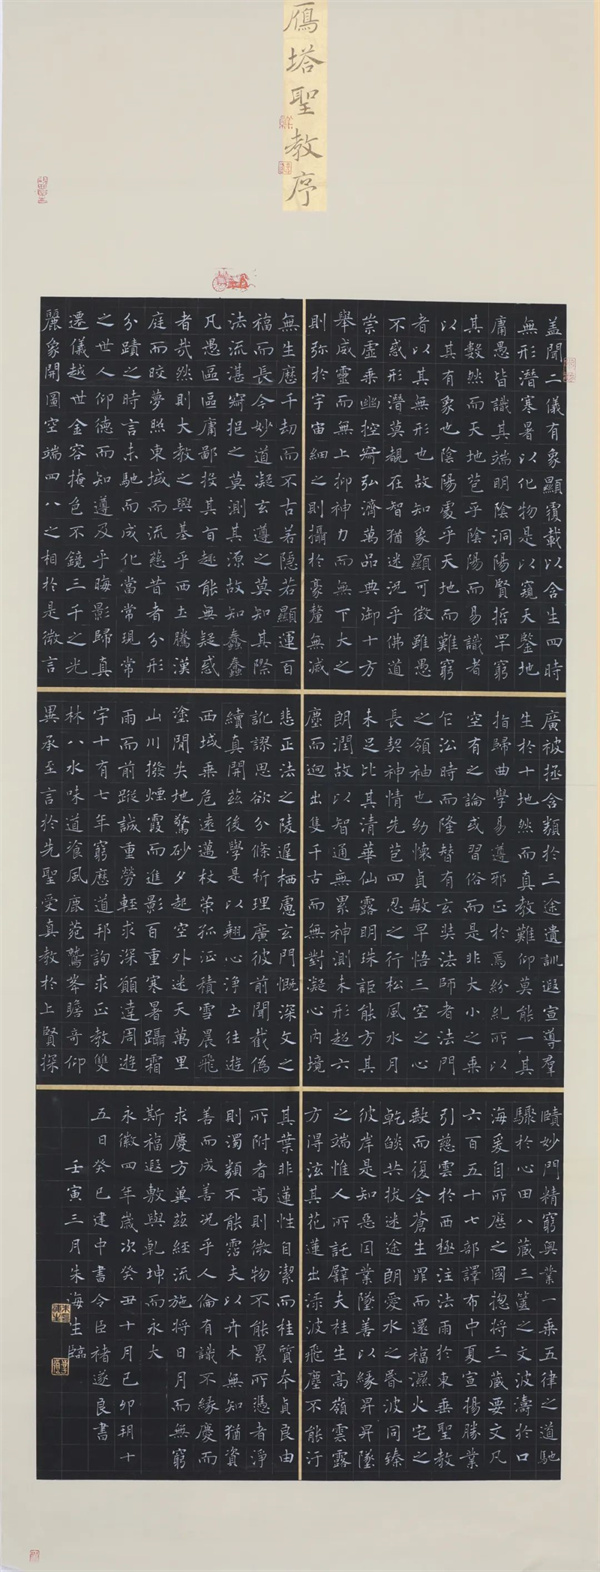 鴈塔聖教序
蓋聞二儀有象顯覆載以含生四時
無形潛寒暑以化物是以窺天鑒地
庸愚皆識其端明陰洞陽賢哲罕窮
其數然而天地苞乎陰陽而易識者
以其有象也陰陽處乎天地而難窮
者以其無形也故知象顯可徵雖愚
不惑形潛莫覩在智猶迷況乎佛道
崇虛乘幽控寂弘濟萬品典御十方
舉威靈而無上抑神力而無下大之
則弥於宇宙細之則攝於豪釐無滅
無生歷千劫而不古若隱若顯運百
福而長今妙道凝玄遵之莫知其際
法流湛寂挹之莫測其源故知蠢蠢
凡愚區區庸鄙投其旨趣能無疑惑
者哉然則大教之興基乎西土騰漢
庭而皎夢照東域而流慈昔者分形
分蹟之時言未馳而成化當常現常
之世人仰德而知遵及乎晦影歸真
遷儀越世金容掩色不鏡三千之光
麗象開圖空端四八之相於是微言
廣被拯含類於三途遺訓遐宣導群
生於十地然而真教難仰莫能一其
指歸曲學易遵邪正於焉紛糺所以
空有之論或習俗而是非大小之乘
乍訟時而隆替有玄奘法師者法門
之領袖也幼懷貞敏早悟三空之心
長契神情先苞四忍之行松風水月
未足比其清華仙露明珠詎能方其
朗潤故以智通無累神測未形超六
塵而迥出隻千古而無對凝心內境
悲正法之陵遲栖慮玄門慨深文之
訛謬思欲分條析理廣彼前聞截偽
續真開茲後學是以翹心淨土往遊
西域乘危遠邁杖策孤征積雪晨飛
塗間失地驚砂夕起空外迷天萬里
山川撥煙霞而進影百重寒暑躡霜
雨而前蹤誠重勞輕求深願達周遊
宇十有七年窮歷道邦詢求正教雙
林八水味道飡風鹿菀鷲峯瞻奇仰
異承至言於先聖受真教於上賢探
賾妙門精窮奧業一乘五律之道馳
驟於心田八藏三篋之文波濤於口
海爰自所歷之國揔將三藏要文凡
六百五十七部譯布中夏宣揚勝業
引慈雲於西極注法雨於東垂聖教
缺而復全蒼生罪而還福濕火宅之
乾燄共拔迷途朗愛水之昏波同臻
彼岸是知惡因業墜善以緣昇昇墜
之端惟人所託譬夫桂生高嶺雲露
方得泫其花蓮出淥波飛塵不能汙
其葉非蓮性自潔而桂質本貞良由
所附者高則微物不能累所憑者淨
則濁類不能霑夫以卉木無知猶資
善而成善況乎人倫有識不緣慶而
求慶方冀茲經流施將日月而無窮
斯福遐敷與乾坤而永大
永徽四年歲次癸丑十月己卯朔十
五日癸巳建中書令臣褚遂良書
壬寅三月朱海生臨